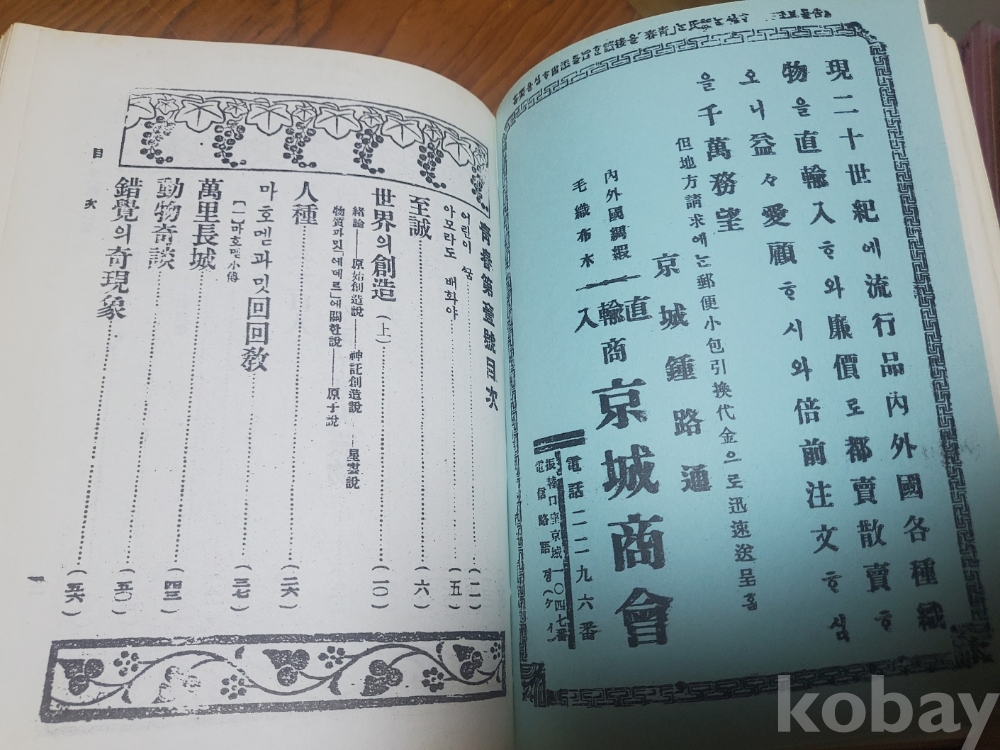 現二十世紀에流行品內外國各種織
物을直輸入ᄒᆞ와廉價로都賣散賣ᄒᆞ
오니益々愛顧ᄒᆞ시와倍前注文ᄒᆞ심
을千萬務望
但地方請求에ᄂᆞᆫ郵便小包引換代金으로迅速送呈홈
京城鍾路通
內外國綢緞
毛織布木
直輸入商
京城商會
電話二二九六番
振替口座京城一〇四七番
電信略語경(ケイ)
靑春第壹號目次
어린이 꿈 (一)
아모라도 배화야 (五)
至誠 (六)
世界의創造(上) (一〇)
緖論──原始創造說──神託創造說──星雲說
物質과밋「에테르」에關한說──原子說
人種 (二六)
마호멧과밋回回敎 (三七)
【一】마호멧小傳
萬里長城 (四三)
動物奇談 (五〇)
錯覺의奇現象 (五六)
目次
一
kobay